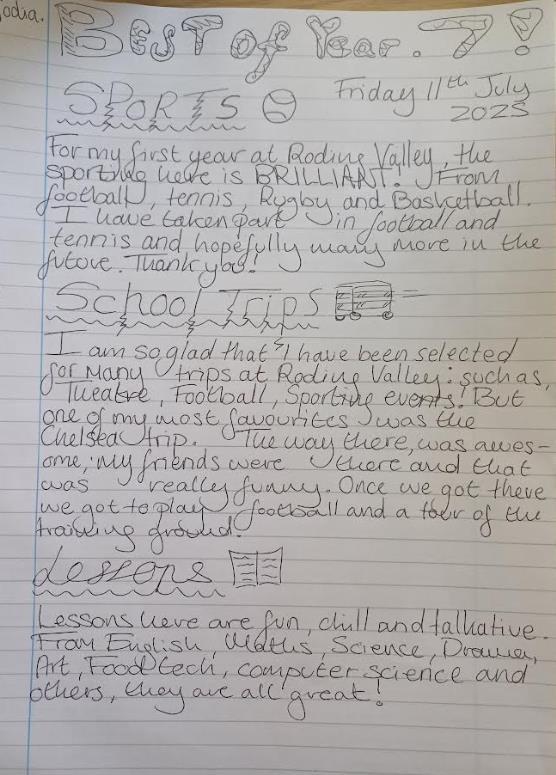 odia.
Best of Year. 7!
Friday 11th July
2025
SPORTS
For my first year at Roding Valley, the
sporting here is BRILLIANT! From
football, tennis, Rugby and Basketball.
I have taken part in football and
tennis and hopefully many more in the
future. Thank you!
School Trips
I am so glad that I have been selected
for many trips at Roding Valley: such as,
Theatre, Football, Sporting events! But
one of my most favourites was the
Chelsea trip. The way there, was awes-
ome, my friends were there and that
was really funny. Once we got there
we got to play football and a tour of the
training ground.
Lessons
Lessons here are fun, chill and talkative.
From English, Maths, Science, Drama,
Art, Food tech, computer science and
others, they are all great!